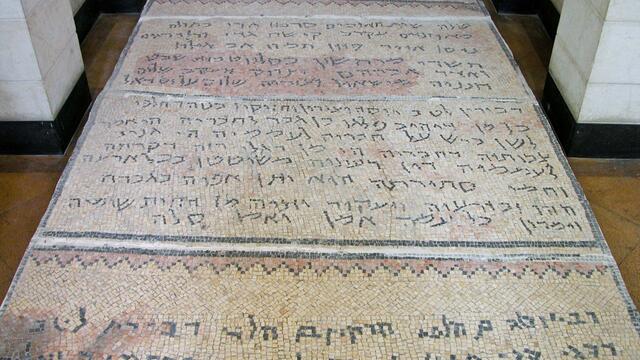 טלה שור תאומים סרטן ארי בתולה
מאוזניים עקרב קשת גדי ודלי דגים
ניסן אייר סיון תמוז אב אילול
תשרי מרחשון כסליו טבית שבט
ואדר אברהם יצחק יעקב שלום
חנניה מישאיל ועזריה שלום על ישראל
דכירין לטב יוסה ועירון וחזיקיו בנוה דחלפי
כל מן דיהיב פלגו בן גבר לחבריה הי אמר
לשן ביש על חבריה לעממיה הי גניב
צבותיה דחבריה הי מן דגלי רזה דקרתה
לעממיה דין דעינוה משוטטן בכל ארעה
וחמי סתירתה הוא יתן אפוה בגברה
ההו ובזרעיה ויעקור יתיה מן תחות שומיה
וימרון כל עמה אמן ואמן סלה
רבי יוסה בן חלפי חזקיו בן חלפי דכירין לטב